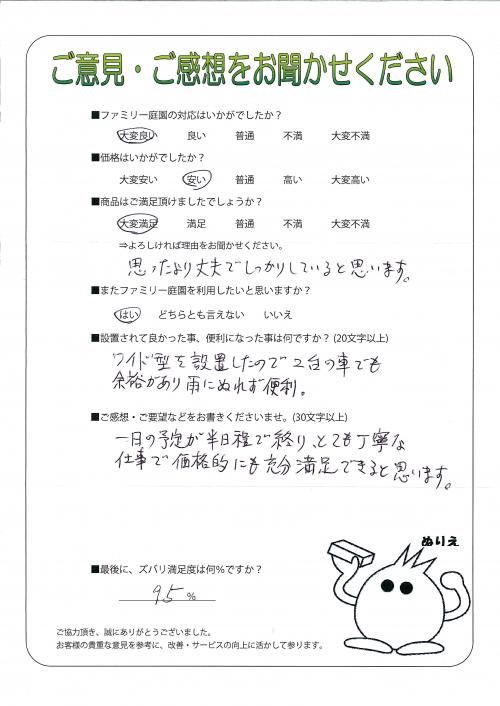 ご意見・ご感想をお聞かせください
■ファミリー庭園の対応はいかがでしたか？
大変良い 良い 普通 不満 大変不満
■価格はいかがでしたか？
大変安い 安い 普通 高い 大変高い
■商品はご満足頂けましたでしょうか？
大変満足 満足 普通 不満 大変不満
⇒よろしければ理由をお聞かせください。
思ったより丈夫でしっかりしていると思います。
■またファミリー庭園を利用したいと思いますか？
はい どちらとも言えない いいえ
■設置されて良かった事、便利になった事は何ですか？(20文字以上)
ワイド型を設置したので2台の車でも
余裕があり雨にぬれず便利。
■ご感想・ご要望などをお書きくださいませ。(30文字以上)
一日の予定が半日程で終り、とても丁寧な
仕事で価格的にも充分満足できると思います。
ぬりえ
■最後に、ズバリ満足度は何％ですか？
95 %
ご協力頂き、誠にありがとうございました。
お客様の貴重な意見を参考に、改善・サービスの向上に活かして参ります。